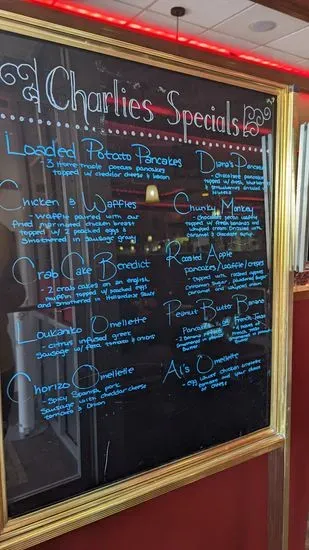 Charlies Specials
Loaded Potato Pancakes
- 3 Homemade potato pancakes
topped w/ cheddar cheese & bacon
Chicken & Waffles
- waffle paired with our
fried marinated chicken breast
topped w/ 2 poached eggs &
smothered in sausage gravy
Crab Cake Benedict
- 2 crab cakes on an english
muffin topped w/ poached eggs
and smothered in Hollandaise sauce
Loukaniko Omelette
- citrus infused greek
sausage w/ feta, tomato & onions
Chorizo Omelette
- Spicy Spanish pork
sausage with cheddar cheese
tomatoes & onion
Diana's Pancakes
- chocolate pancakes
topped w/ fresh
strawberries
Nutella
Chunky Monkey
- chocolate pecan
topped w/ fresh bananas and
whipped cream drizzled with
caramel & chocolate syrup
Roasted Apple
pancakes/waffle/crepes
- topped with roasted apples
cinnamon sugar, powdered sugar
caramel and whipped cream
Peanut Butter Banana
Pancakes or French Toast
Al's Omelette
- egg whites chicken
tomatoes and your choice
of cheese